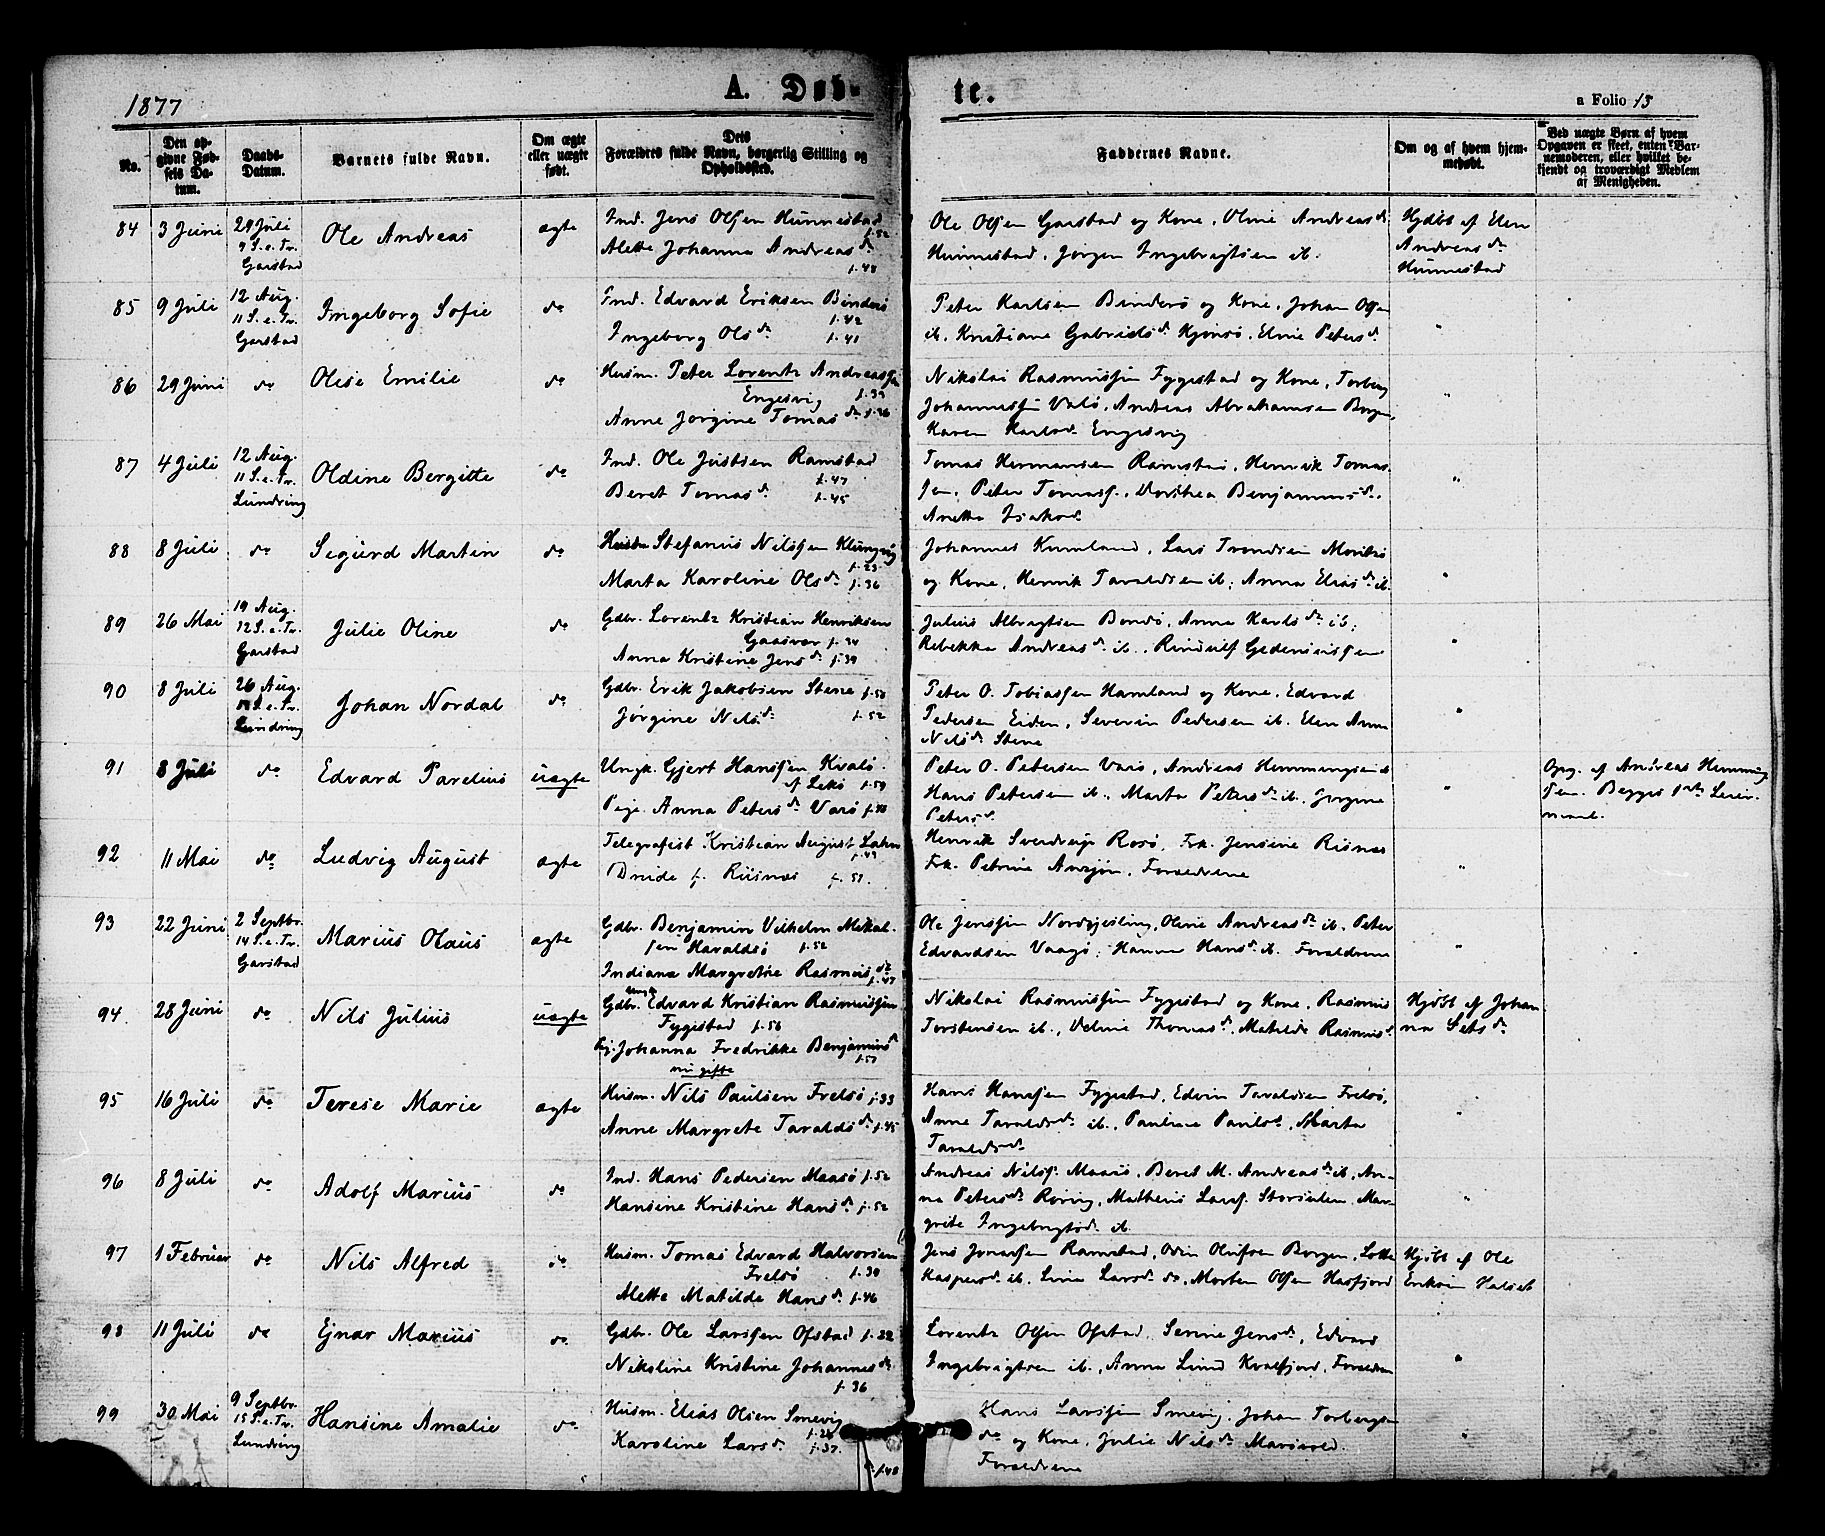 1877
A. Døb-
te.
a Folio 13
No.
Den op-
givne Fød-
sels Da-
tum.
Daabs-
Datum.
Barnets fulde Navn.
Om ægte
eller uægte
født.
Dets
Forældres fulde Navn, borgerlig Stilling og
Opholdssted.
Faddernes Navne.
Om og af hvem hjem-
medøbt.
Ved uægte Børn af hvem
Opgaven er skeet, enten Bar-
nemoderen, eller hvilket be-
kjendt og troværdigt Medlem
af Menigheden.
84 3 Juni 29 Juli
9 S. e. Tr.
Garstad
Ole Andreas
ægte
Ind. Jens Olsen Hunnestad
f. 52
Alette Johanna Andreasda
f. 48
Ole Olsen Garstad og Kone, Andreasda
Hunnestad, Jørgen Ingebrigtsen ib.
Hjdbt af Elen
Andreasda
Hunnestad
85 9 Juli 12 Aug.
11 S. e. Tr.
Garstad
Ingeborg Sofie
do
Ind. Edvard Eriksen Binderø
f. 42
Ingeborg Olsda f. 41
Peter Karlsen Binderø og Kone, Johan Olsen
ib. Kristiane Gabrielsda, Eline Petersda
"
86 29 Juni do
Olise Emilie
do
Husm. Peter Lorentz Andreassen
Engesvig f. 39
Anne Jørgine Tomasda f. 36
Nikolai Rasmussen Fygestad og Kone, Torberg
Johannessen Valø, Andreas Abrahamsen Borgen,
Karen Karlsda Engesvig
"
87 4 Juli 12 Aug.
11 S. e. Tr.
Lundring
Oldine Bergitte
do
Ind. Ole Justsen Ramstad
f. 47
Beret Tomasda f. 45
Tomas Hermansen Ramstad, Henrik Tomas-
sen, Peter Tomass., Dorthea Benjaminsda,
Anette Isaksda
"
88 8 Juli do
Sigurd Martin
do
Stefanus Nilssen Klungvig
f. 23
Marta Karoline Olsda f. 36
Johannes Kumland, Lars Trondsen
og Kone, Henrik Taraldsen ib., Anna Eliasda ib.
"
89 26 Mai 19 Aug.
12 S. e. Tr.
Garstad
Julie Oline
do
Gdbr. Lorentz Kristian Henriksen
Gaasvær f. 34
Anna Kristine Jensda f. 39
Julius Albregtsen Bondø, Anna Karlsda ib,
Rebekka Andreasda ib., Rindulf Gedeonssen
"
90 8 Juli 26 Aug.
Lundring
Johan Nordal
do
Gdbr. Erik Jakobsen Stene f. 50
Jørgine Nilsda f. 52
Peter O. Tobiassen Hamland og Kone, Edvard
Pedersen Eiden, Severin Pedersen ib. Elen Anna
Nilsda Stene
"
91 8 Juli do
Edvard Parelius
uægte
Ungk. Gjert Hanssen Kvalø
af Lekø f. 59
Pige Anna Petersda Varø f. 40
Peter O. Petersen Varø, Andreas Hemmingsen ib
Hans Petersen ib., Marta Petersda ib, Jørgine
Petersda
"
Opg. af Andreas Hemming-
sen. Begges 1ste Leier-
maal.
92 11 Mai do
Ludvig August
ægte
Telegrafist Kristian August Lahn
f. 49
Drude f. Riisnæs f. 51
Henrik Sverdrup Rosø, Frk. Jensine Risnæs
Frk. Petrine, Forældrene
"
93 22 Juni 2 Septbr.
14 S. e. Tr.
Garstad
Marius Olaus
ægte
Gdbr. Benjamin Vilhelm Mikal-
sen Haraldsø f. 52
Indiana Margrethe Rasmusda
f. 47
Ole Jenssen, Oline Andreasda ib. Peter
Edvardsen Vaagø, Hanna Hansda ib. Forældrene
"
94 28 Juni do
Nils Julius
uægte
Gdbr. Edvard Kristian Rasmussen
Fygestad f. 56
Pig. Johanna Fredrikke Benjaminsda
f. 57
nu gifte
Nikolai Rasmussen Fygestad og Kone, Rasmus
Torstensen ib., Thomasda, Matilde Rasmusda
Hjdbt af Johan-
na Setsda
95 16 Juli do
Terese Marie
ægte
Husm. Nils Paulsen Frelsø f. 33
Anne Margrete Taraldsda f. 45
Hans Hanssen Fygestad, Edvin Taraldsen Frelsø,
Anne Taraldsda ib., Pauline Paulsda, Marta
Taraldsda
"
96 8 Juli do
Adolf Marius
do
Ind. Hans Pedersen Maasø f. 52
Hansine Kristine Hansda f. 52
Andreas Nilss. Maasø, Beret M. Andreasda ib, An-
na Petersda Røring, Matheus Larss. Storsalen, Mar-
grete Ingebrigtsda ib.
"
97 1 Februar do
Nils Alfred
do
Husm. Tomas Edvard Halvorsen
Frelsø f. 30
Alette Matilde Hansda f. 46
Jens Jonassen Ramstad, Odin Olufsen Borgen, Lotte
Kaspersda ib, Line Larsda do, Morten Olsen Hasfjord
Hjdbt af Ole
Eriksen Halset
98 11 Juli do
Ejnar Marius
do
Gdbr. Ole Larssen Ofstad f. 32
Nikoline Kristine Johannesda
f. 36
Lorentz Olsen Ofstad, Serine Jensda, Edvard
Ingebrigtsen ib., Anna Lund Kvalfjord, Forældrene
"
99 30 Mai 9 Septbr.
15 S. e. Tr.
Lundring
Hansine Amalie
do
Husm. Elias Olsen Smevig
Karoline Larsda f. 37.
f. 40
Hans Larssen Smevig, Johan Torbergs-
og Kone, Julie Nilsda
Forældrene
"